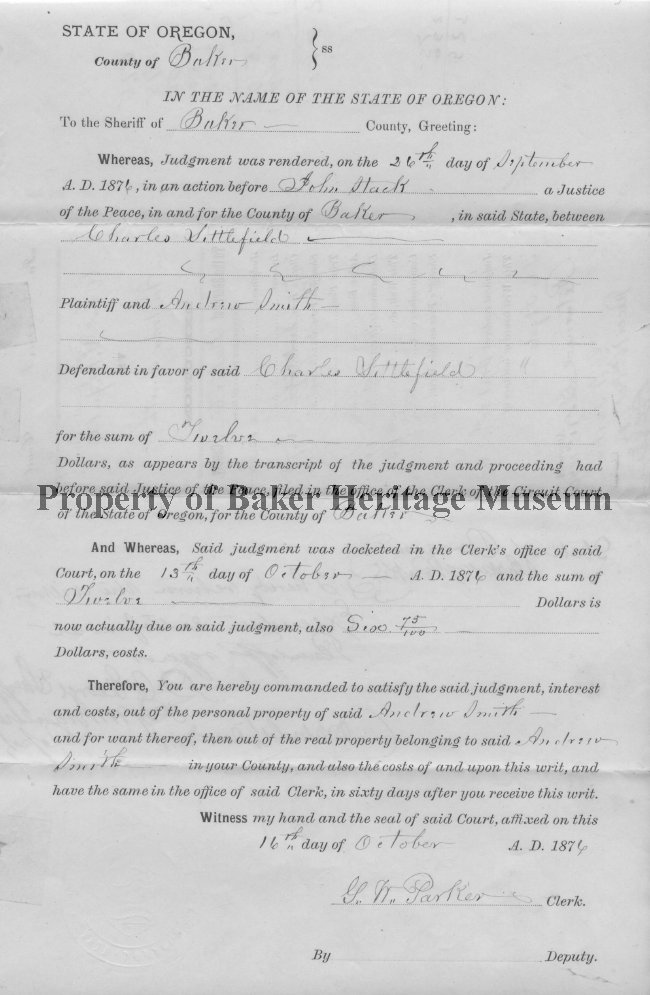 STATE OF OREGON,
County of Baker } ss
IN THE NAME OF THE STATE OF OREGON:
To the Sheriff of Baker County, Greeting:
Whereas, Judgment was rendered, on the 26th day of September
A. D. 1876, in an action before John Stack a Justice
of the Peace, in and for the County of Baker, in said State, between
Charles Littlefield
Plaintiff and Andrew Smith
Defendant in favor of said Charles Littlefield
for the sum of Twelve
Dollars, as appears by the transcript of the judgment and proceeding had
before said Justice of the Peace, filed in the office of the Clerk of the Circuit Court
Property of Baker Heritage Museum
of the State of Oregon, for the County of Baker
And Whereas, Said judgment was docketed in the Clerk's office of said
Court, on the 13th day of October A. D. 1876 and the sum of
Twelve Dollars is
now actually due on said judgment, also Six 75/100
Dollars, costs.
Therefore, You are hereby commanded to satisfy the said judgment, interest
and costs, out of the personal property of said Andrew Smith
and for want thereof, then out of the real property belonging to said Andrew
Smith in your County, and also the costs of and upon this writ, and
have the same in the office of said Clerk, in sixty days after you receive this writ.
Witness my hand and the seal of said Court, affixed on this
16th day of October A. D. 1876
G. W. Parker Clerk.
By Deputy.